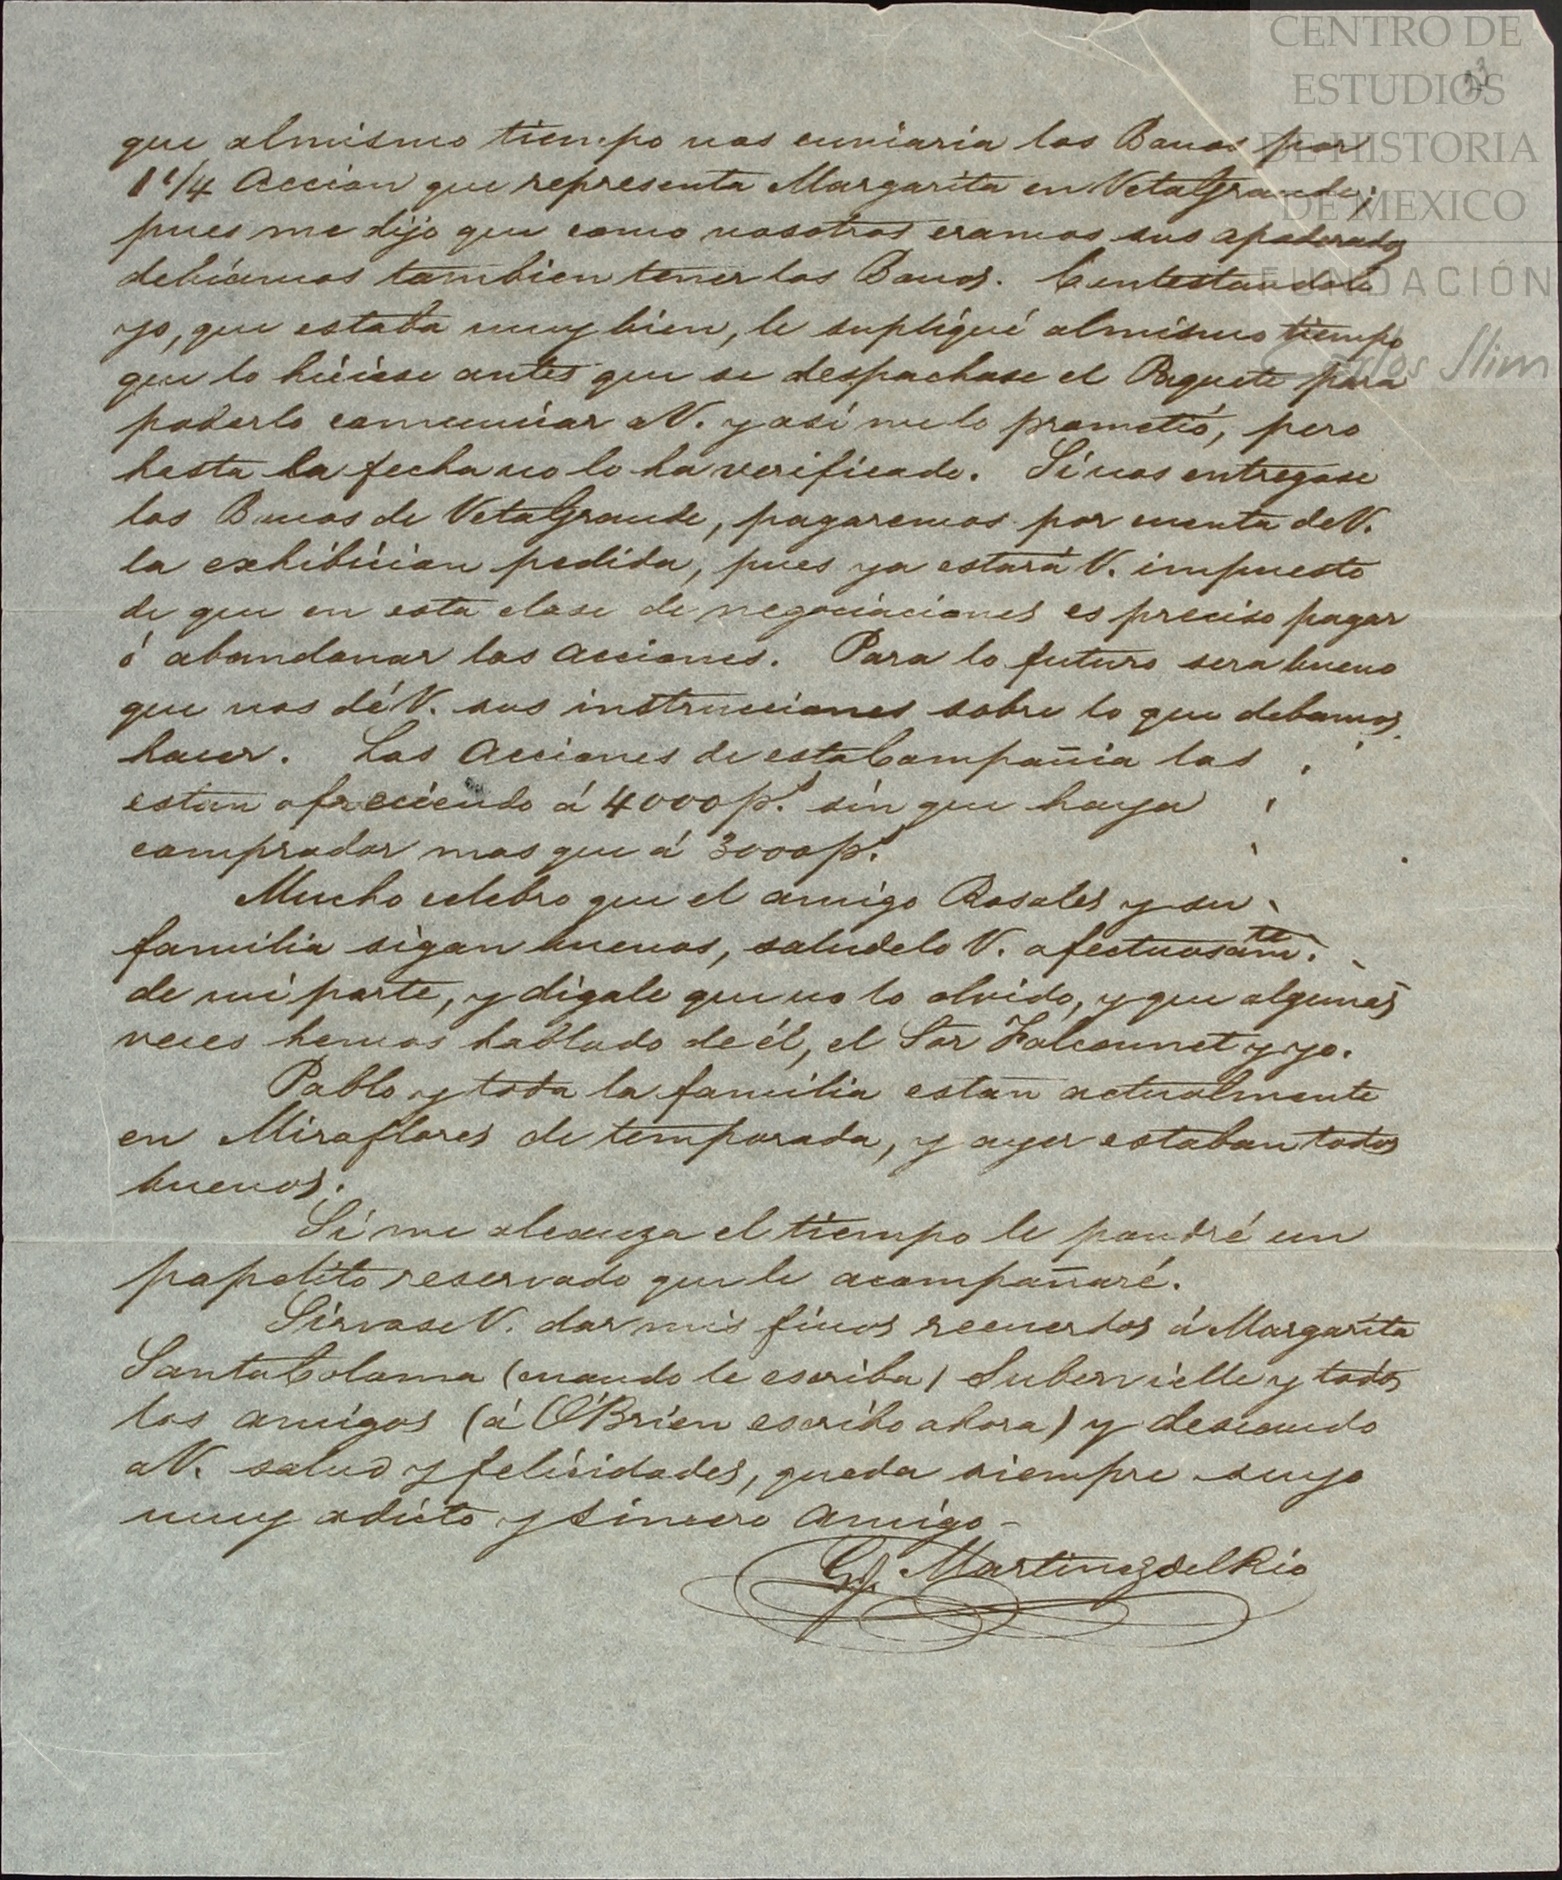 CENTRO DE
ESTUDIOS
DE HISTORIA
DE MEXICO
FUNDACIÓN
Carlos Slim
23
que almismo tiempo nos enviaria los Bonos por
1 1/4 Accion que representa Margarita en VetaGrande,
pues me dijo que como nosotros eramos sus apoderados
debíamos tambien tener los Bonos. Contestandole
yo, que estaba muy bien, le supliqué almismo tiempo
que lo hiciese antes que se despachase el Paquete para
poderlo comunicar aV. y asi me lo prometió, pero
hasta la fecha no lo ha verificado. Si nos entregase
los Bonos de VetaGrande, pagaremos por cuenta deV.
la exhibicion pedida, pues ya estará V. impuesto
de que en esta clase de negociaciones es preciso pagar
ó abandonar las acciones. Para lo futuro sera bueno
que nos dé V. sus instrucciones sobre lo que debamos
hacer. Las Acciones de esta Compañia las
estan ofreciendo á 4000 p.s sin que haya
comprador mas que á 3000 p.s
Mucho celebro que el amigo Rosales y su
familia sigan buenos, saludelo V. afectuosam.te
de mi parte, y digale que no lo olvido, y que algunas
veces hemos hablado de él, el Sor Falconnet y yo.
Pablo y toda la familia estan actualmente
en Miraflores de temporada, y ayer estaban todos
buenos.
Si me alcanza el tiempo le pondré un
papelito reservado que le acompañaré.
Sirvase V. dar mis finos recuerdos á Margarita
SantaColoma (cuando le escriba) Subervielle y todos
los amigos (á O'Brien escribo ahora) y deseando
aV. salud y felicidades, queda siempre suyo
muy adicto y sincero amigo–
G. MartinezdelRio